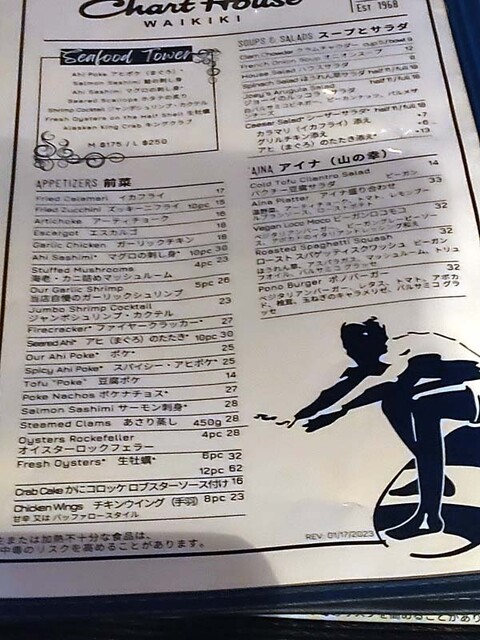 Chart House
WAIKIKI
Est 1968
Seafood Tower
Ahi Poke アヒポケ (まぐろ)*
Salmon Sashimi 鮭の刺し身*
Ahi Sashimi マグロの刺し身*
Seared Scallops ホタテの炙り
Shrimp Cocktail ジャンボシュリンプ・カクテル
Fresh Oysters on the Half Shell 生牡蠣*
Alaskan King Crab キングクラブ
M $175 / L $250
APPETIZERS 前菜
Fried Calamari イカフライ 17
Fried Zucchini ズッキーニフライ 10pc 15
Artichoke アーティチョーク 18
Escargot エスカルゴ 18
Garlic Chicken ガーリックチキン 18
Ahi Sashimi* マグロの刺し身* 10pc 30
Stuffed Mushrooms 4pc 23
海老・カニ詰めマッシュルーム
Our Garlic Shrimp 5pc 26
当店自慢のガーリックシュリンプ
Jumbo Shrimp Cocktail 23
ジャンボシュリンプ・カクテル
Firecracker* ファイヤークラッカー* 27
Seared Ahi* アヒ (まぐろ) のたたき* 10pc 30
Our Ahi Poke* ポケ* 25
Spicy Ahi Poke* スパイシー・アヒポケ* 25
Tofu "Poke" 豆腐ポケ 14
Poke Nachos ポケナチョス* 27
Salmon Sashimi サーモン刺身* 28
Steamed Clams あさり蒸し 450g 28
Oysters Rockefeller 4pc 28
オイスターロックフェラー
Fresh Oysters* 生牡蠣* 6pc 32
12pc 62
Crab Cake かにコロッケ ロブスターソース付け 16
Chicken Wings チキンウイング (手羽) 8pc 23
甘辛 又は バッファロースタイル
または加熱不十分な食品は、
中毒のリスクを高めることがあります。
SOUPS & SALADS スープとサラダ
Clam Chowder クラムチャウダー cup 5/ bowl 9
French Onion Soup 12
House Salad 8
Spinach Salad ほうれん草サラダ half 11/ full 18
Joey's Arugula half 11/ full 18
ジョーイのルッコラ・サラダ
Caesar Salad* シーザーサラダ* half 11/ full 18
カラマリ (イカフライ) 添え +7
グリルチキン添え
アヒ (まぐろ) のたたき添え* +13
'AINA アイナ (山の幸)
Cold Tofu Cilantro Salad ビーガン 14
パクチー豆腐サラダ
Aina Platter アイナ盛り合わせ 33
Vegan Loco Moco ビーガンロコモコ 32
Roasted Spaghetti Squash 32
ロースト スパゲッティ スクワッシュ ビーガン
Pono Burger ポノバーガー 32
REV: 01/17/2023